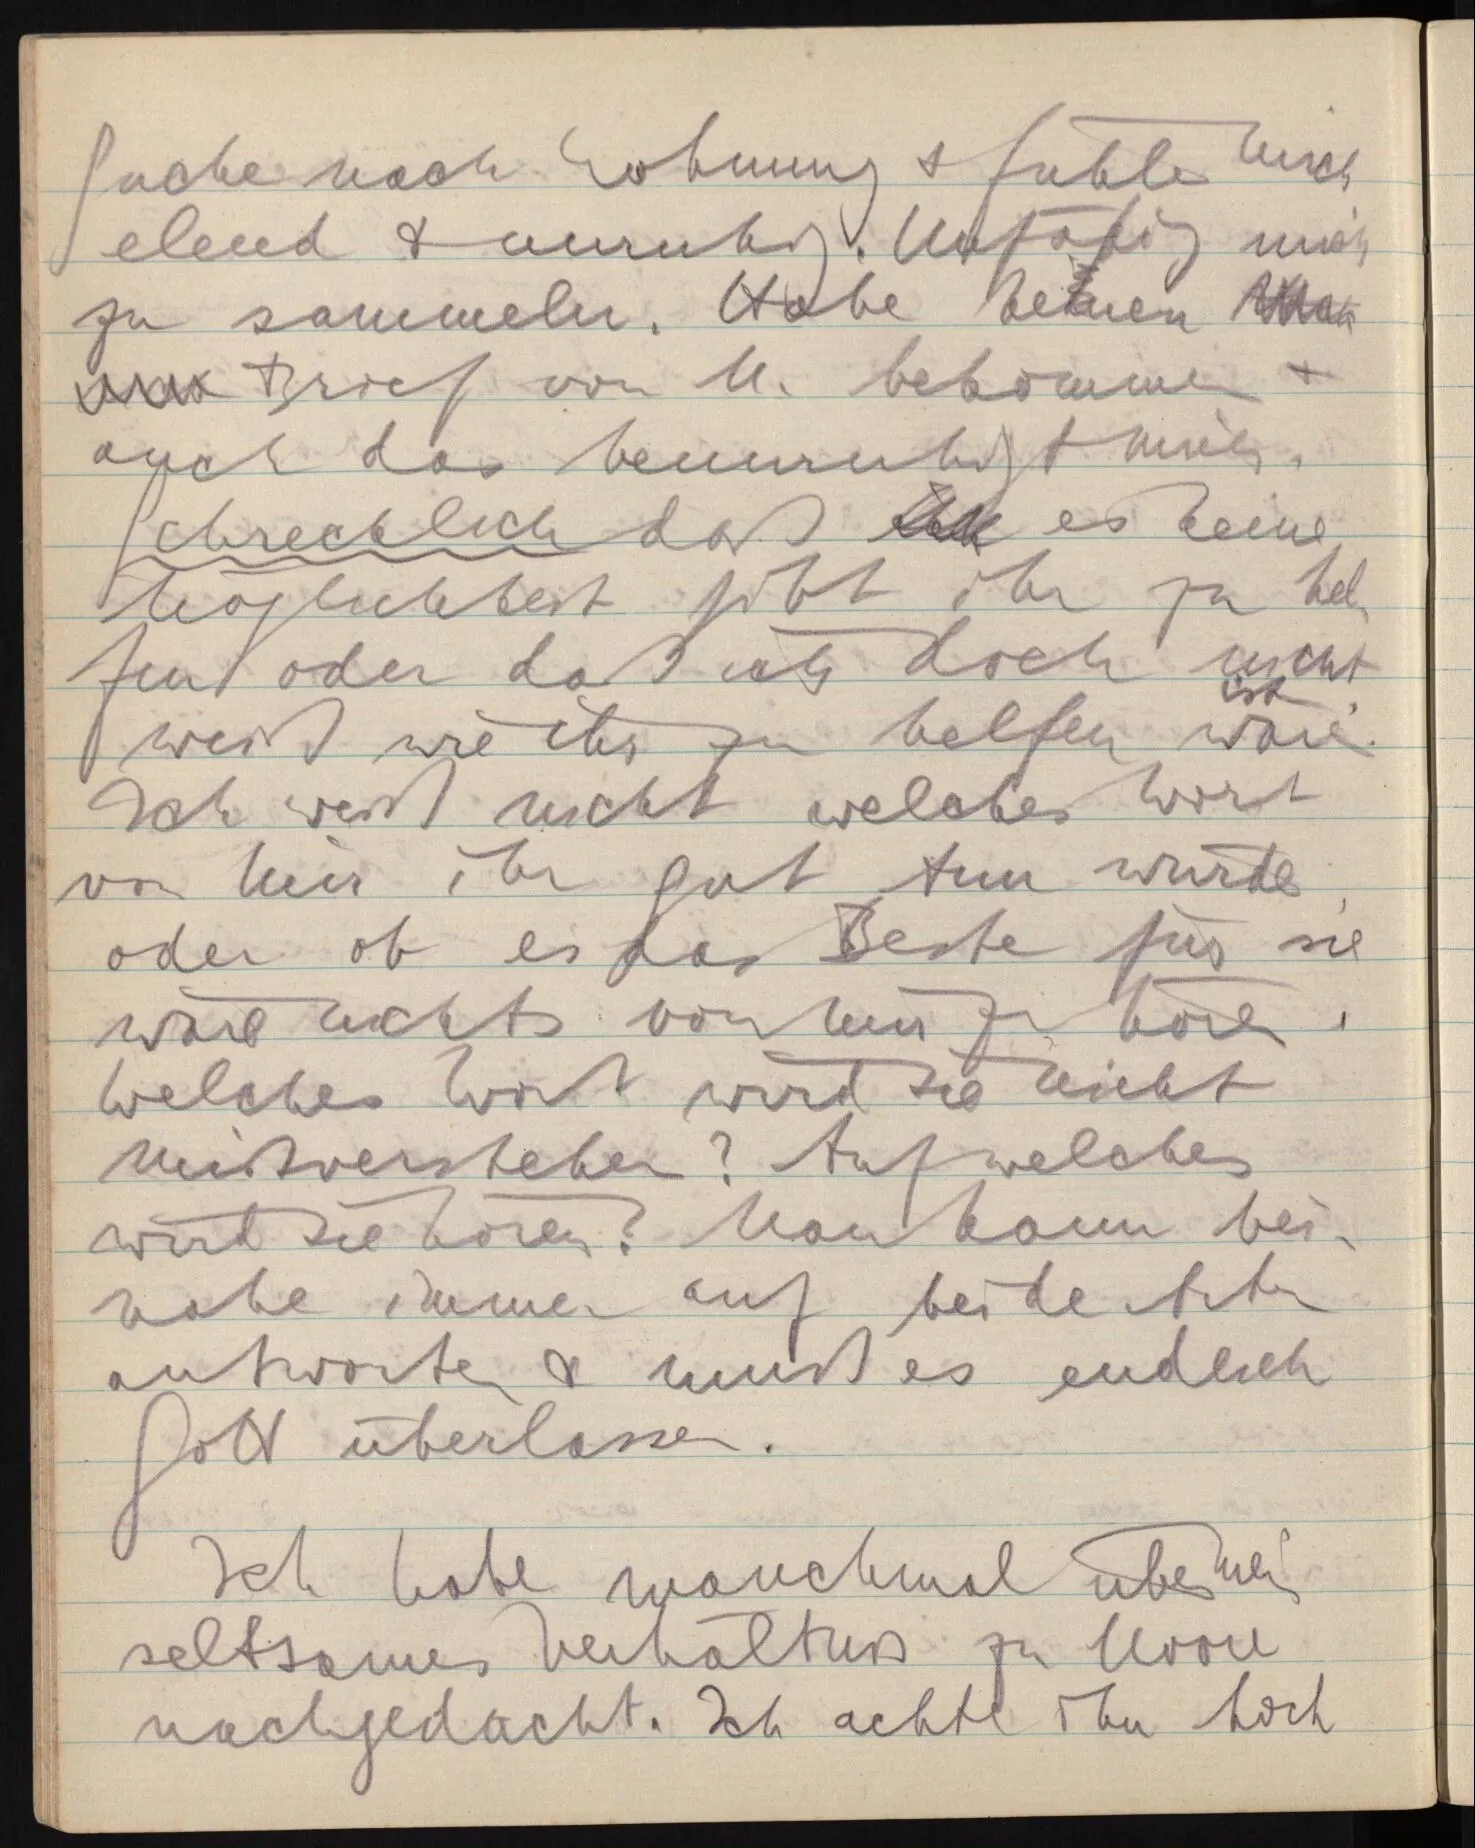 Suche nach Wohnung & fühle mich
elend & unruhig. Unfähig mich
zu sammeln. Habe keinen
Brief von M. bekommen &
auch das beunruhigt mich.
Schrecklich daß es keine
Möglichkeit gibt ihr zu hel-
fen oder daß ich doch nicht
weiß wie ihr zu helfen wäre. ist
Ich weiß nicht welches Wort
von mir ihr gut tun würde
oder ob es das Beste für sie
wäre nichts von mir zu hören.
Welches Wort wird sie nicht
mißverstehen? Auf welches
wird sie hören? Man kann bei-
nahe immer auf beide Arten
antworten & muß es endlich
Gott überlassen.
Ich habe manchmal über mein
seltsames Verhältnis zu Moore
nachgedacht. Ich achte ihn hoch